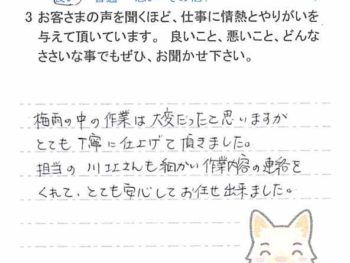 3 お客さまの声を聞くほど、仕事に情熱とやりがいを
与えて頂いています。 良いこと、悪いこと、どんな
ささいな事でもぜひ、お聞かせ下さい。
梅雨の中の作業は大変だったと思いますが
とても丁寧に仕上げて頂きました。
担当の川工さんも細かい作業内容の連絡を
くれて、とても安心してお任せ出来ました。